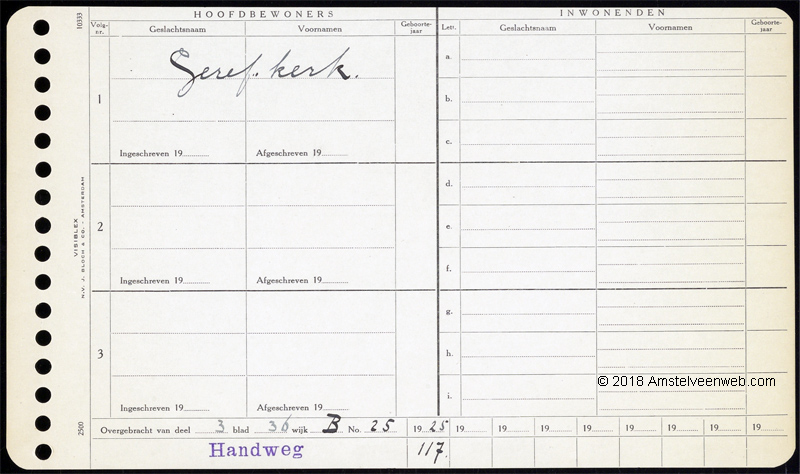 10333
HOOFDBEWONERS
INWONENDEN
Volg-nr.
Geslachtsnaam
Voornamen
Geboorte-jaar
Lett.
Geslachtsnaam
Voornamen
Geboorte-jaar
1
Geref. kerk.
Ingeschreven 19
Afgeschreven 19
2
Ingeschreven 19
Afgeschreven 19
3
Ingeschreven 19
Afgeschreven 19
a.
b.
c.
d.
e.
f.
g.
h.
i.
VISIBLEX
N.V. J. BLOCH & CO. - AMSTERDAM
2500
© 2018 Amstelveenweb.com
Overgebracht van deel 3 blad 36 wijk B No. 25 1925 19 19 19 19 19 19 19 19
Handweg 117.